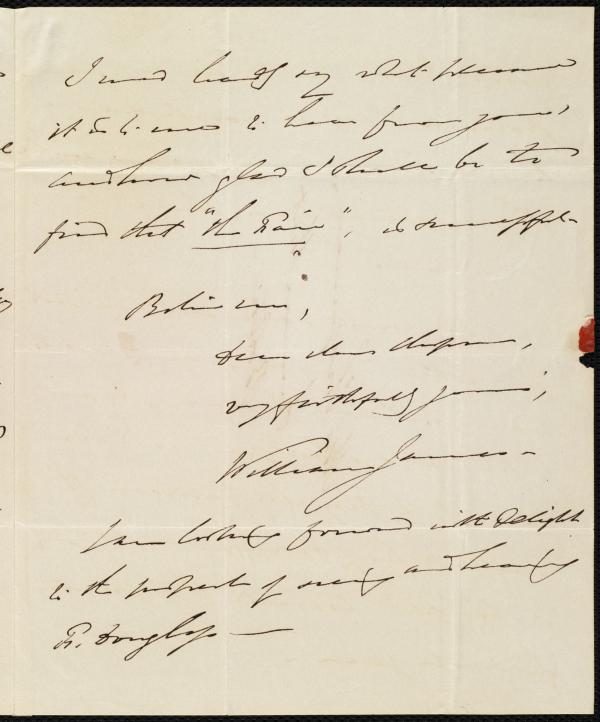 I need hardly say what pleasure
it is to me to hear from you,
and how glad I shall be to
find that "the Fair", is successful -
Believe me,
Dear Mrs Chapman,
very faithfully yours,
William James -
I am looking forward with delight
to the prospect of seeing and hearing
F. Douglass —